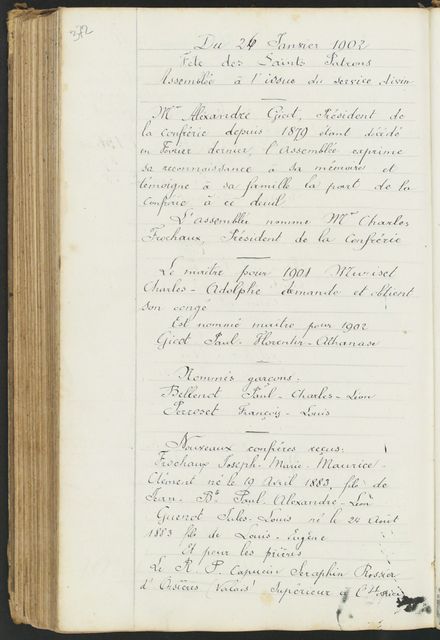 372
Du 26 Janvier 1902
Fête des Saints Patrons
Assemblée à l'issue du service divin
Mr Alexandre Gicot, Président de
la confrérie depuis 1879 étant décédé
en Février dernier, l'Assemblée exprime
sa reconnaissance à sa mémoire et
témoigne à sa famille la part de la
Confrérie à ce deuil.
L'assemblée nomme Mr Charles
Frochaux, Président de la Confrérie
Le maître pour 1901 Muriset
Charles-Adolphe demande et obtient
son congé
Est nommé maître pour 1902
Gicot Paul-Florentin-Athanase
Nommés garçons.
Bellenot Paul-Charles-Léon
Perroset François-Louis
Nouveaux confrères reçus.
Frochaux Joseph-Marie-Maurice-
Clément né le 19 Avril 1883, fils de
Jean-Bte Paul Alexandre-Léon
Guenot Jules-Louis né le 24 Août
1883 fils de Louis-Eugène
Et pour les prières
Le R. P. Capucin Séraphin Rossier
d'Orsières (Valais) Supérieur à